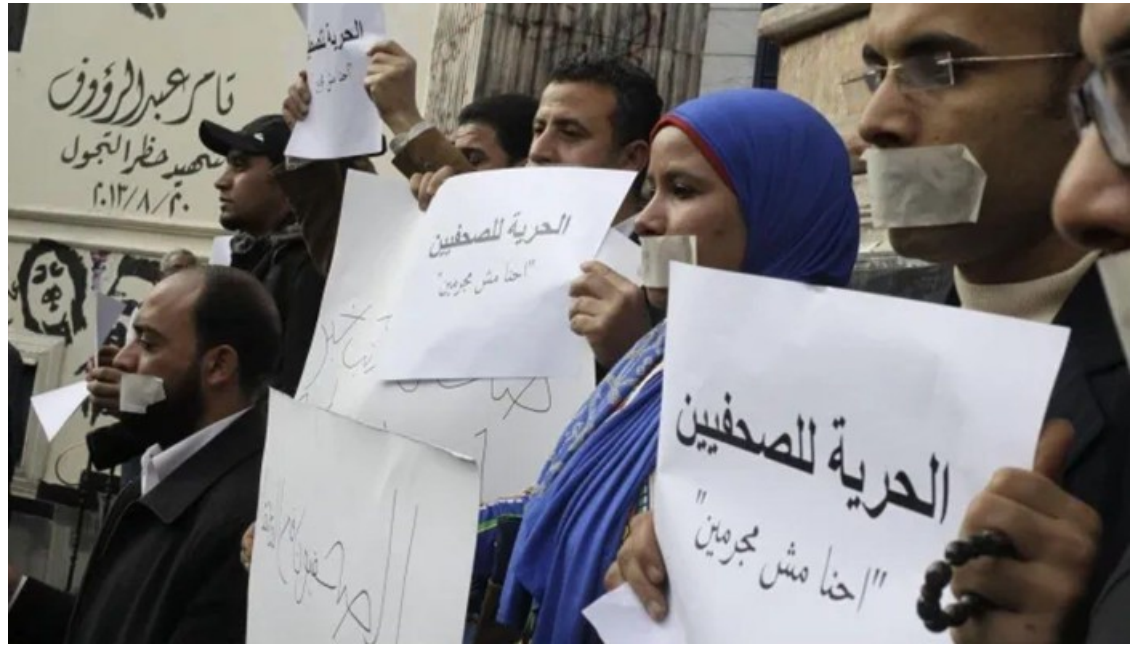 تامر عبد الرؤوف
شهيد حظر التجول
٢٠١٣/٨/٢٠
الحرية
"احنا مش
الحرية للصحفيين
"احنا مش مجرمين"
الحرية للصحفيين
"احنا مش مجرمين"